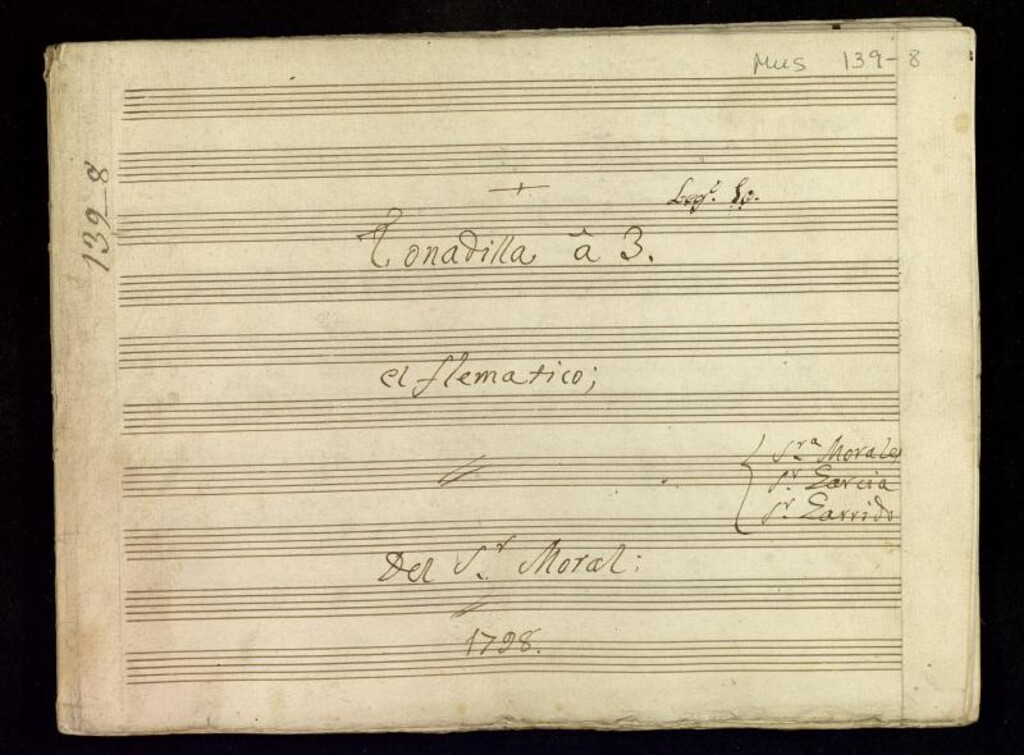 Mus 139-8
139-8
Leg.º
Tonadilla â 3.
el flematico;
S.ra Morales
S.r Garcia
S.r Garrido
Del S.r Moral:
1798.